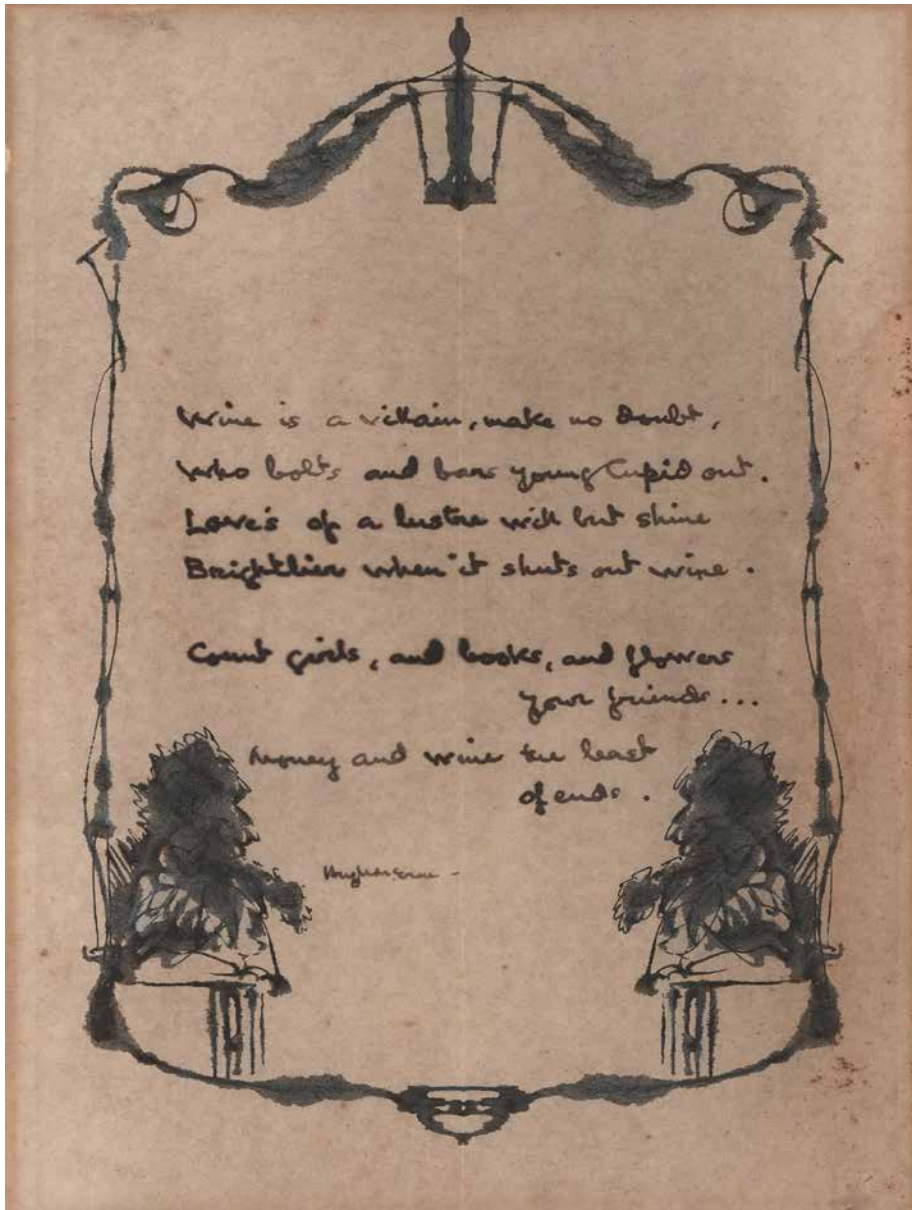 Wine is a villain, make no doubt,
Who bolts and bars young Cupid out.
Love's of a lustre will but shine
Brightlier when it shuts out wine.
Count girls, and books, and flowers
your friends...
Money and wine the least
of ends.